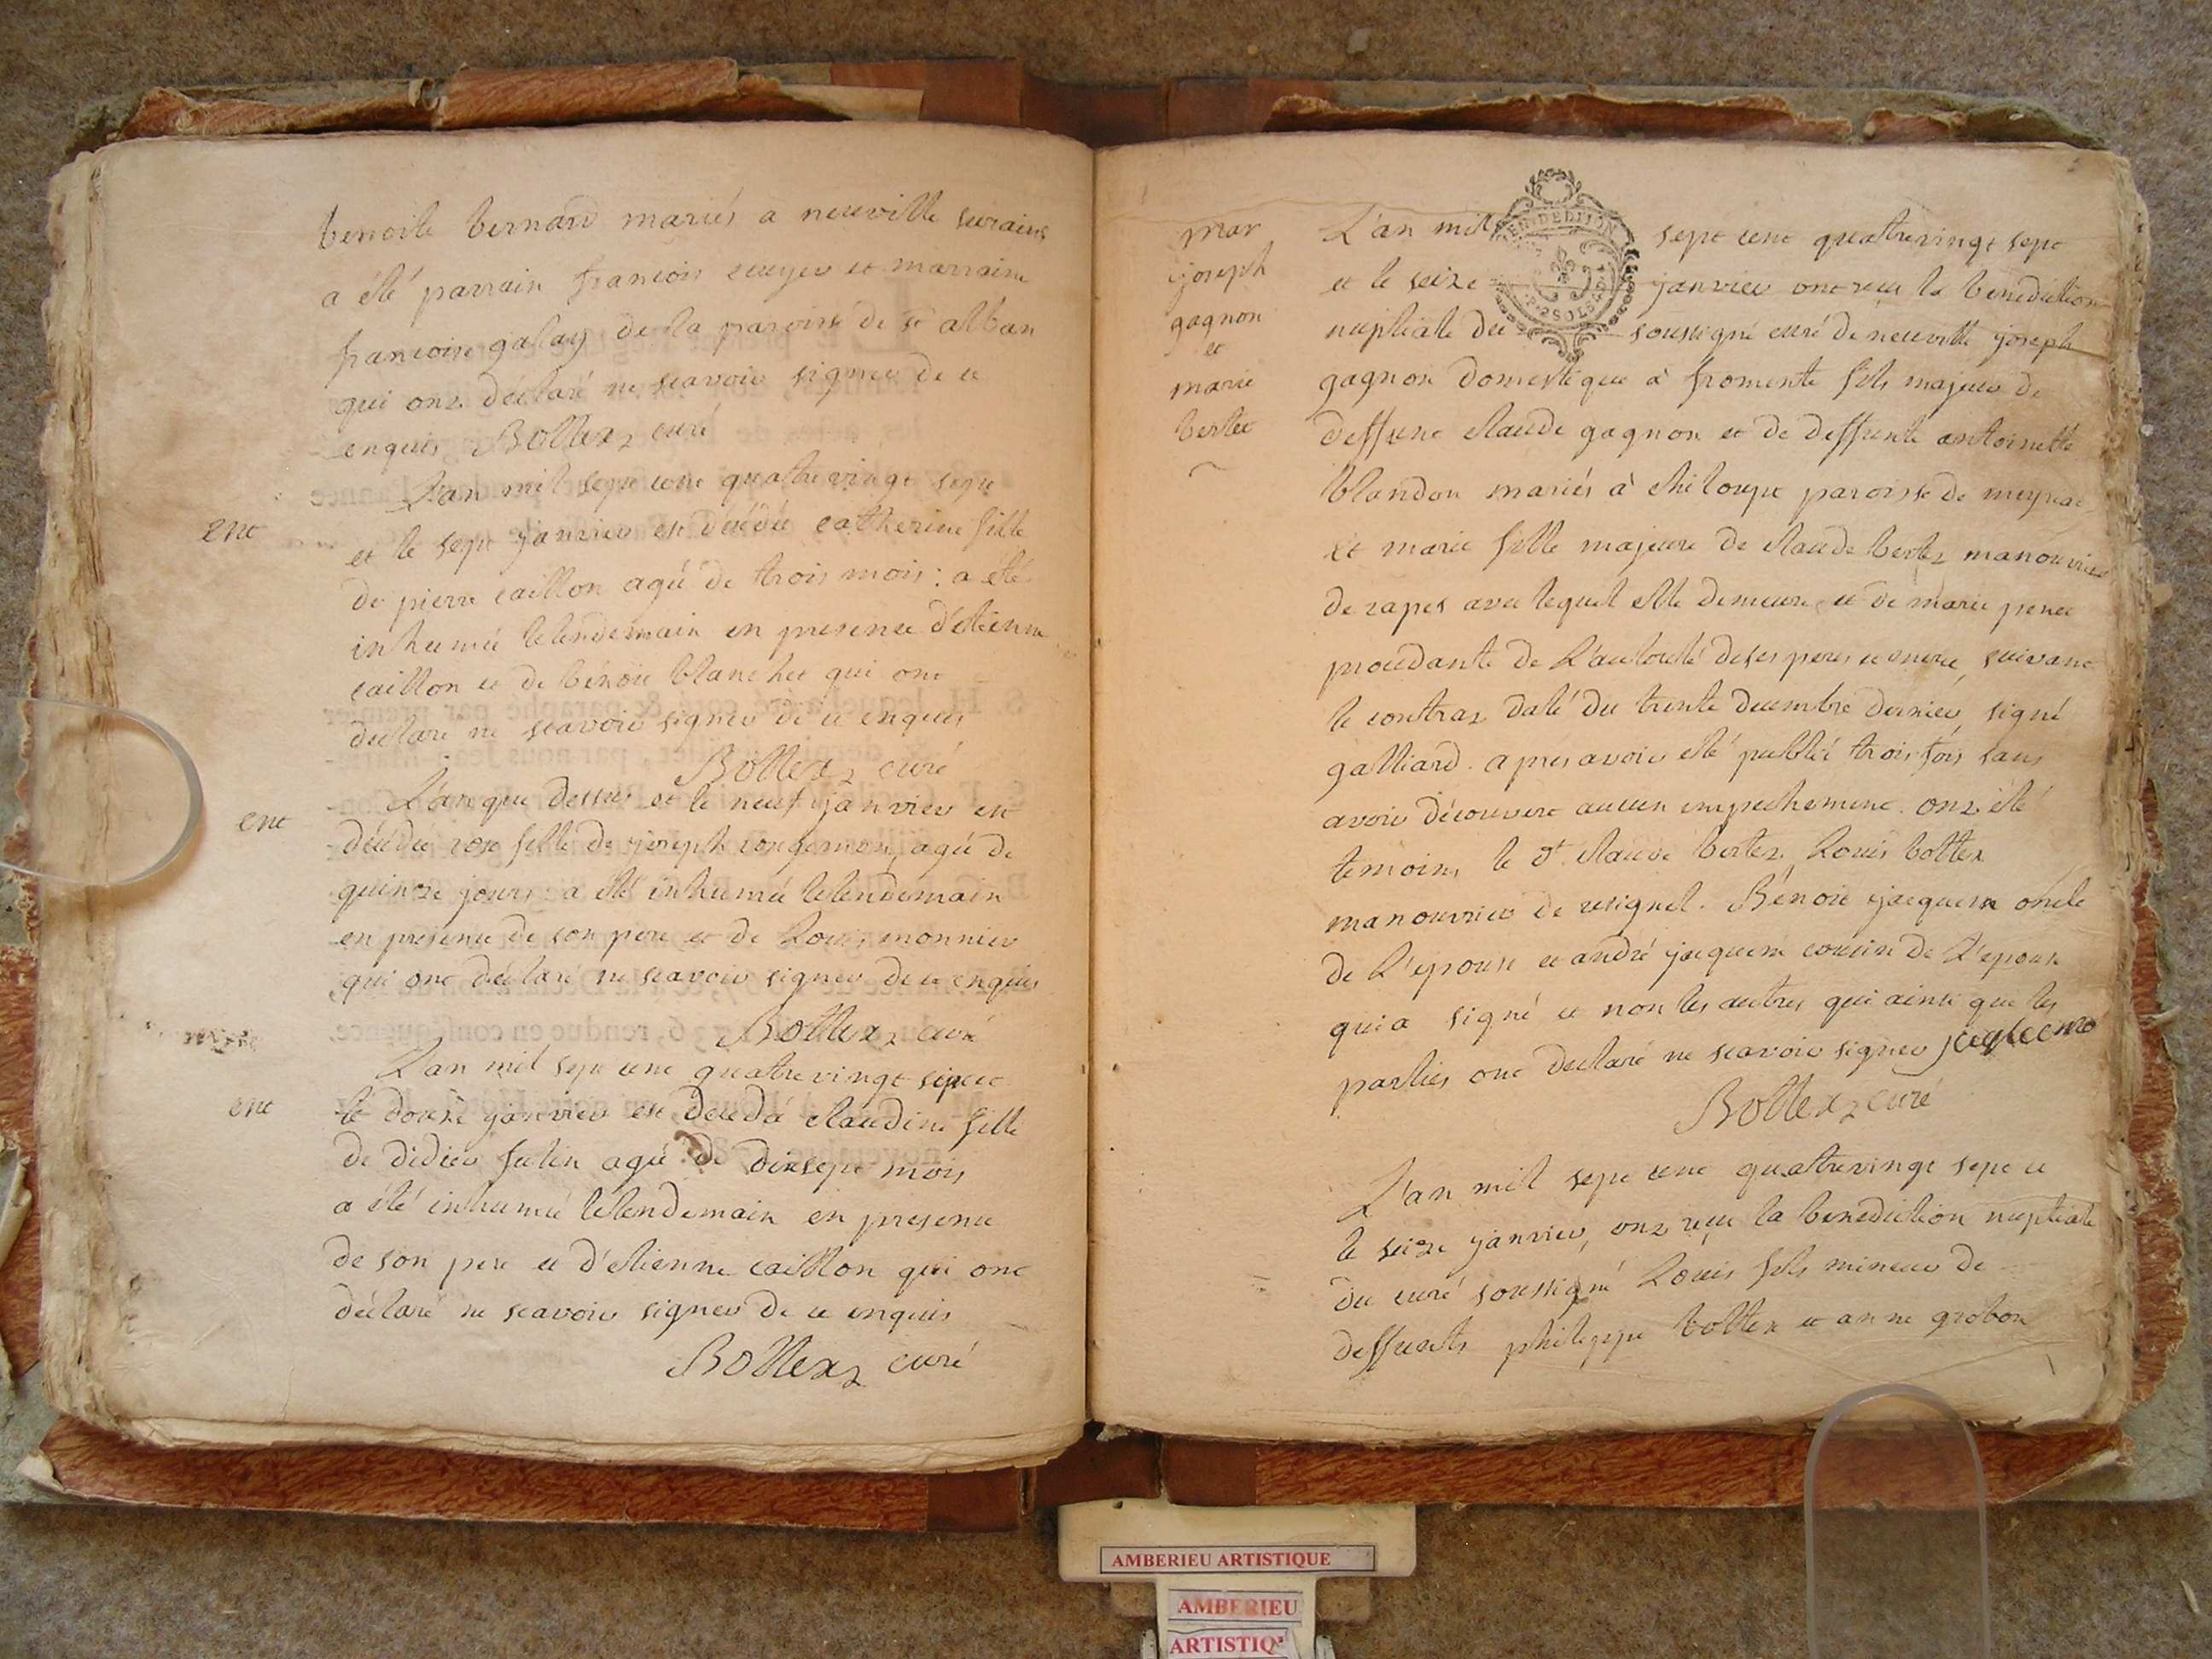 benoite bernard mariés a neuville surains
a été parrain francois cuzyer et marraine
francoise galay de la paroisse de st alban
qui onz déclaré ne scavoir signer de ce
enquis Bottex curé
ent
L'an mil sept cent quatre vingt sept
et le sept janvier est décédée catherine fille
de pierre caillon agée de trois mois : a été
inhumée le lendemain en presence d'étienne
caillon et de bénoit blanchet qui ont
declaré ne scavoir signer de ce enquis
Bottex curé
ent
L'an que dessus et le neuf janvier est
décédée rose fille de joseph longemon, agée de
quinze jours : a été inhumée le lendemain
en presence de son pere et de Louis monnier
qui ont déclaré ne scavoir signer de ce enquis
Bottex curé
ent
L'an mil sept cent quatre vingt sept et
le douze janvier est decedée claudine fille
de didier futin agée de dixsept mois
a été inhumée le lendemain en presence
de son pere et d'étienne caillon qui ont
déclaré ne scavoir signer de ce enquis
Bottex curé
mar
joseph
gagnon
et
marie
bertet
L'an mil sept cent quatrevingt sept
et le seize janvier ont reçu la benediction
nuptiale du soussigné curé de neuville joseph
gagnon domestique à fromente fils majeur de
deffunt claude gagnon et de deffunte antoinette
blandon mariés à chiloup paroisse de
Et marie fille majeure de claude bertez manouvrier
de rapes avec lequel elle demeure, et de marie penet
procedante de L'autorité de ses peres et mere, suivant
le contraz daté du trente decembre dernier, signé
galliard. apres avoir été publiée trois fois sans
avoir découvert aucun empechement. onz été
temoins le dt. claude bertez, Louis bottex
manouvrier de resignel. Bénoit jacquem oncle
de L'epouse et andré jacquem cousin de L'epouse
qui a signé et non les autres qui ainsi que les
parties ont declaré ne scavoir signer
Bottex curé
L'an mil sept cent quatrevingt sept et
le seize janvier, onz reçu la benediction nuptiale
du curé soussigné Louis fils mineur de
deffunts philippe bottex et anne grobon
AMBERIEU ARTISTIQUE
AMBERIEU
ARTISTIQ